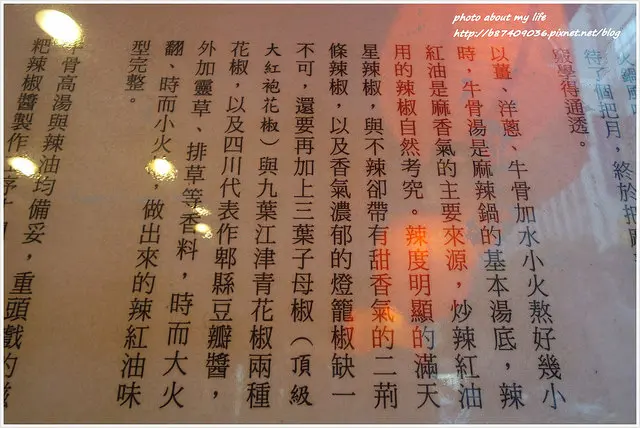 photo about my life
http://b87409036.pixnet.net/blog
待了個把月，終於
竅學得通透。
以薑、洋蔥、牛骨加水小火熬好幾小
時，牛骨湯是麻辣鍋的基本湯底，辣
紅油是麻香氣的主要來源，炒辣紅油
用的辣椒自然考究。辣度明顯的滿天
星辣椒，與不辣卻帶有甜香氣的二荊
條辣椒，以及香氣濃郁的燈籠椒缺一
不可，還要再加上三葉子母椒（頂級
大紅袍花椒）與九葉江津青花椒兩種
花椒，以及四川代表作郫縣豆瓣醬，
外加靈草、排草等香料，時而大火
翻、時而小火，做出來的辣紅油味
型完整。
牛骨高湯與辣油均備妥，重頭戲的
粑辣椒醬製作